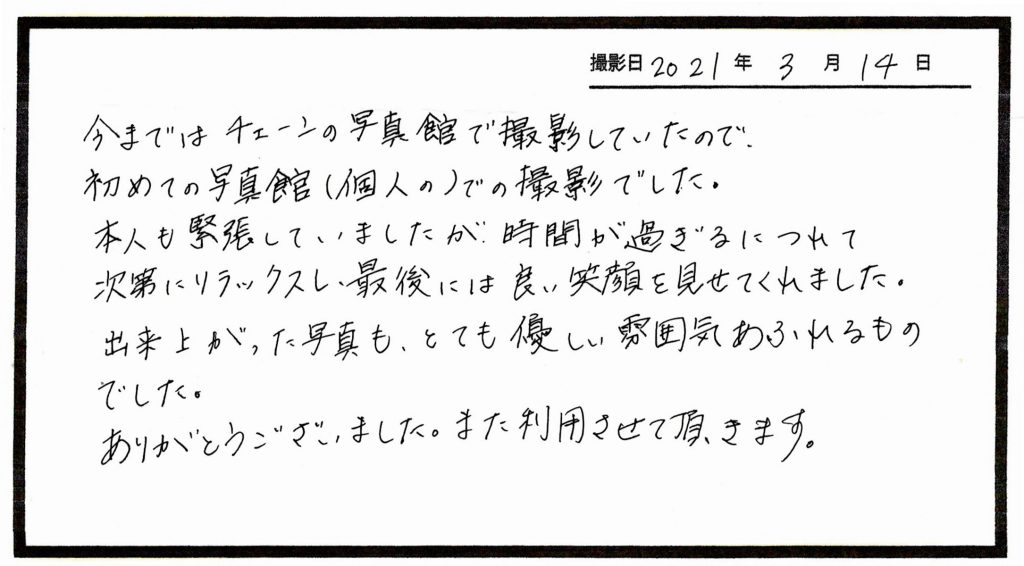 撮影日 2021 年 3 月 14 日
今まではチェーンの写真館で撮影していたので、
初めての写真館(個人の)での撮影でした。
本人も緊張していましたが、時間が過ぎるにつれて
次第にリラックスし、最後には良い笑顔を見せてくれました。
出来上がった写真も、とても優しい雰囲気あふれるもの
でした。
ありがとうございました。また利用させて頂きます。